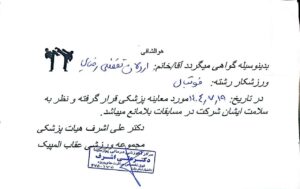 هوالشافی
بدینوسیله گواهی میگردد آقا/خانم:
ورزشکار رشته: فوتبال
در تاریخ: ۱۴۰۴٫۷٫۱۹ مورد معاینه پزشکی قرار گرفته و نظر به
سلامت ایشان شرکت در مسابقات بلامانع میباشد.
دکتر علی اشرف هیات پزشکی
مجموعه ورزشی عقاب المپیک